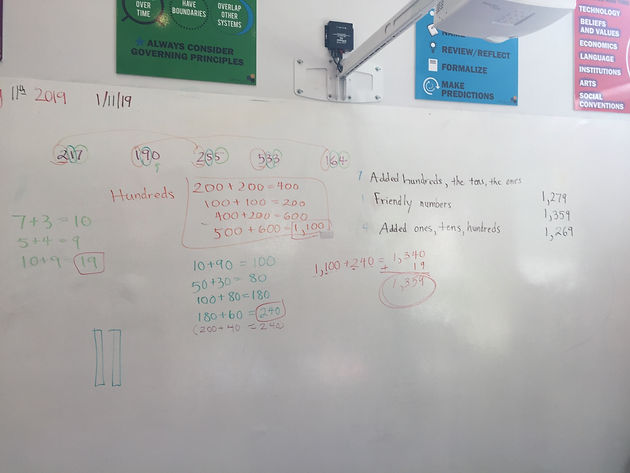 OVER
TIME
HAVE
BOUNDARIES
OVERLAP
OTHER
SYSTEMS
ALWAYS CONSIDER
GOVERNING PRINCIPLES
REVIEW/REFLECT
FORMALIZE
MAKE
PREDICTIONS
TECHNOLOGY
BELIEFS
AND VALUES
ECONOMICS
LANGUAGE
INSTITUTIONS
ARTS
SOCIAL
CONVENTIONS
11th 2019 1/11/19
217 190 255 533 164
Hundreds
200 + 200 = 400
100 + 100 = 200
400 + 200 = 600
500 + 600 = 1,100
7 + 3 = 10
5 + 4 = 9
10 + 9 = 19
10 + 90 = 100
50 + 30 = 80
100 + 80 = 180
180 + 60 = 240
(200 + 40 = 240)
1,100 + 240 = 1,340
+ 19
1,359
7 Added hundreds, the tens, the ones
Friendly numbers
Added ones, tens, hundreds
1,279
1,359
1,269